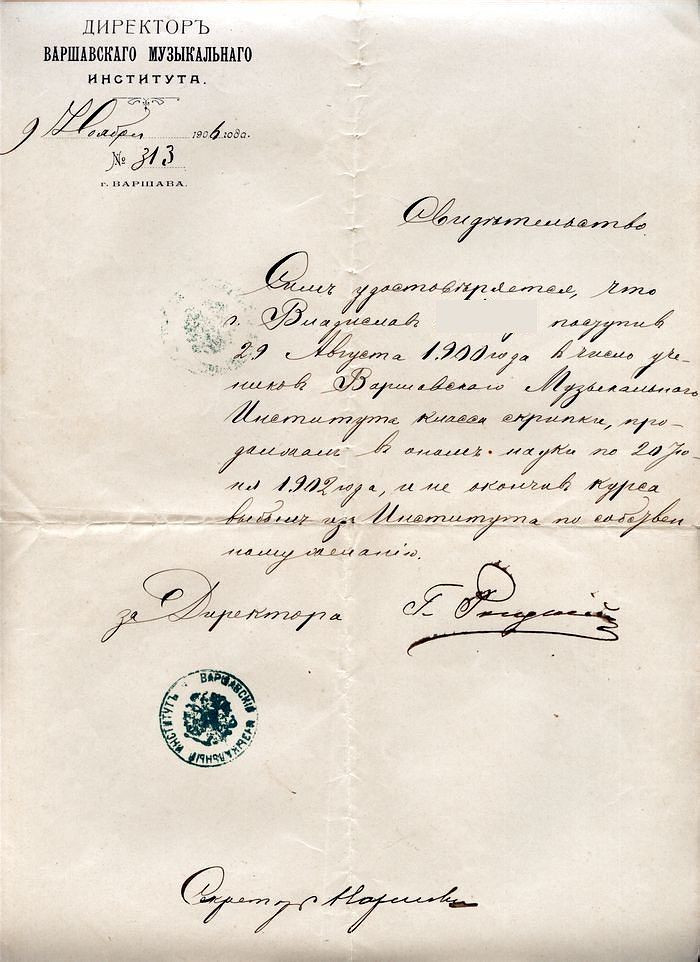 ДИРЕКТОРЪ
ВАРШАВСКАГО МУЗЫКАЛЬНАГО
ИНСТИТУТА.
9 Ноября 1906 года.
№ 313
г. ВАРШАВА.
Свидѣтельство.
Симъ удостовѣряется, что
г. Владиславъ поступив
29 Августа 1900 года в число уче-
ников Варшавскаго Музыкальнаго
Института класса скрипки, про-
должал в оном науки по 20 Iю-
ня 1902 года, и не окончив курса
выбыл из Института по собствен-
ному желанію.
за Директора Г.
ВАРШАВСКІЙ МУЗЫКАЛЬНЫЙ ИНСТИТУТЪ
Секретарь